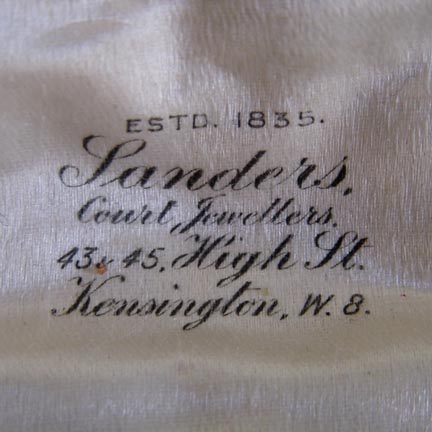 ESTD. 1835.
Sanders,
Court Jewellers,
43 & 45, High St.
Kensington, W. 8.